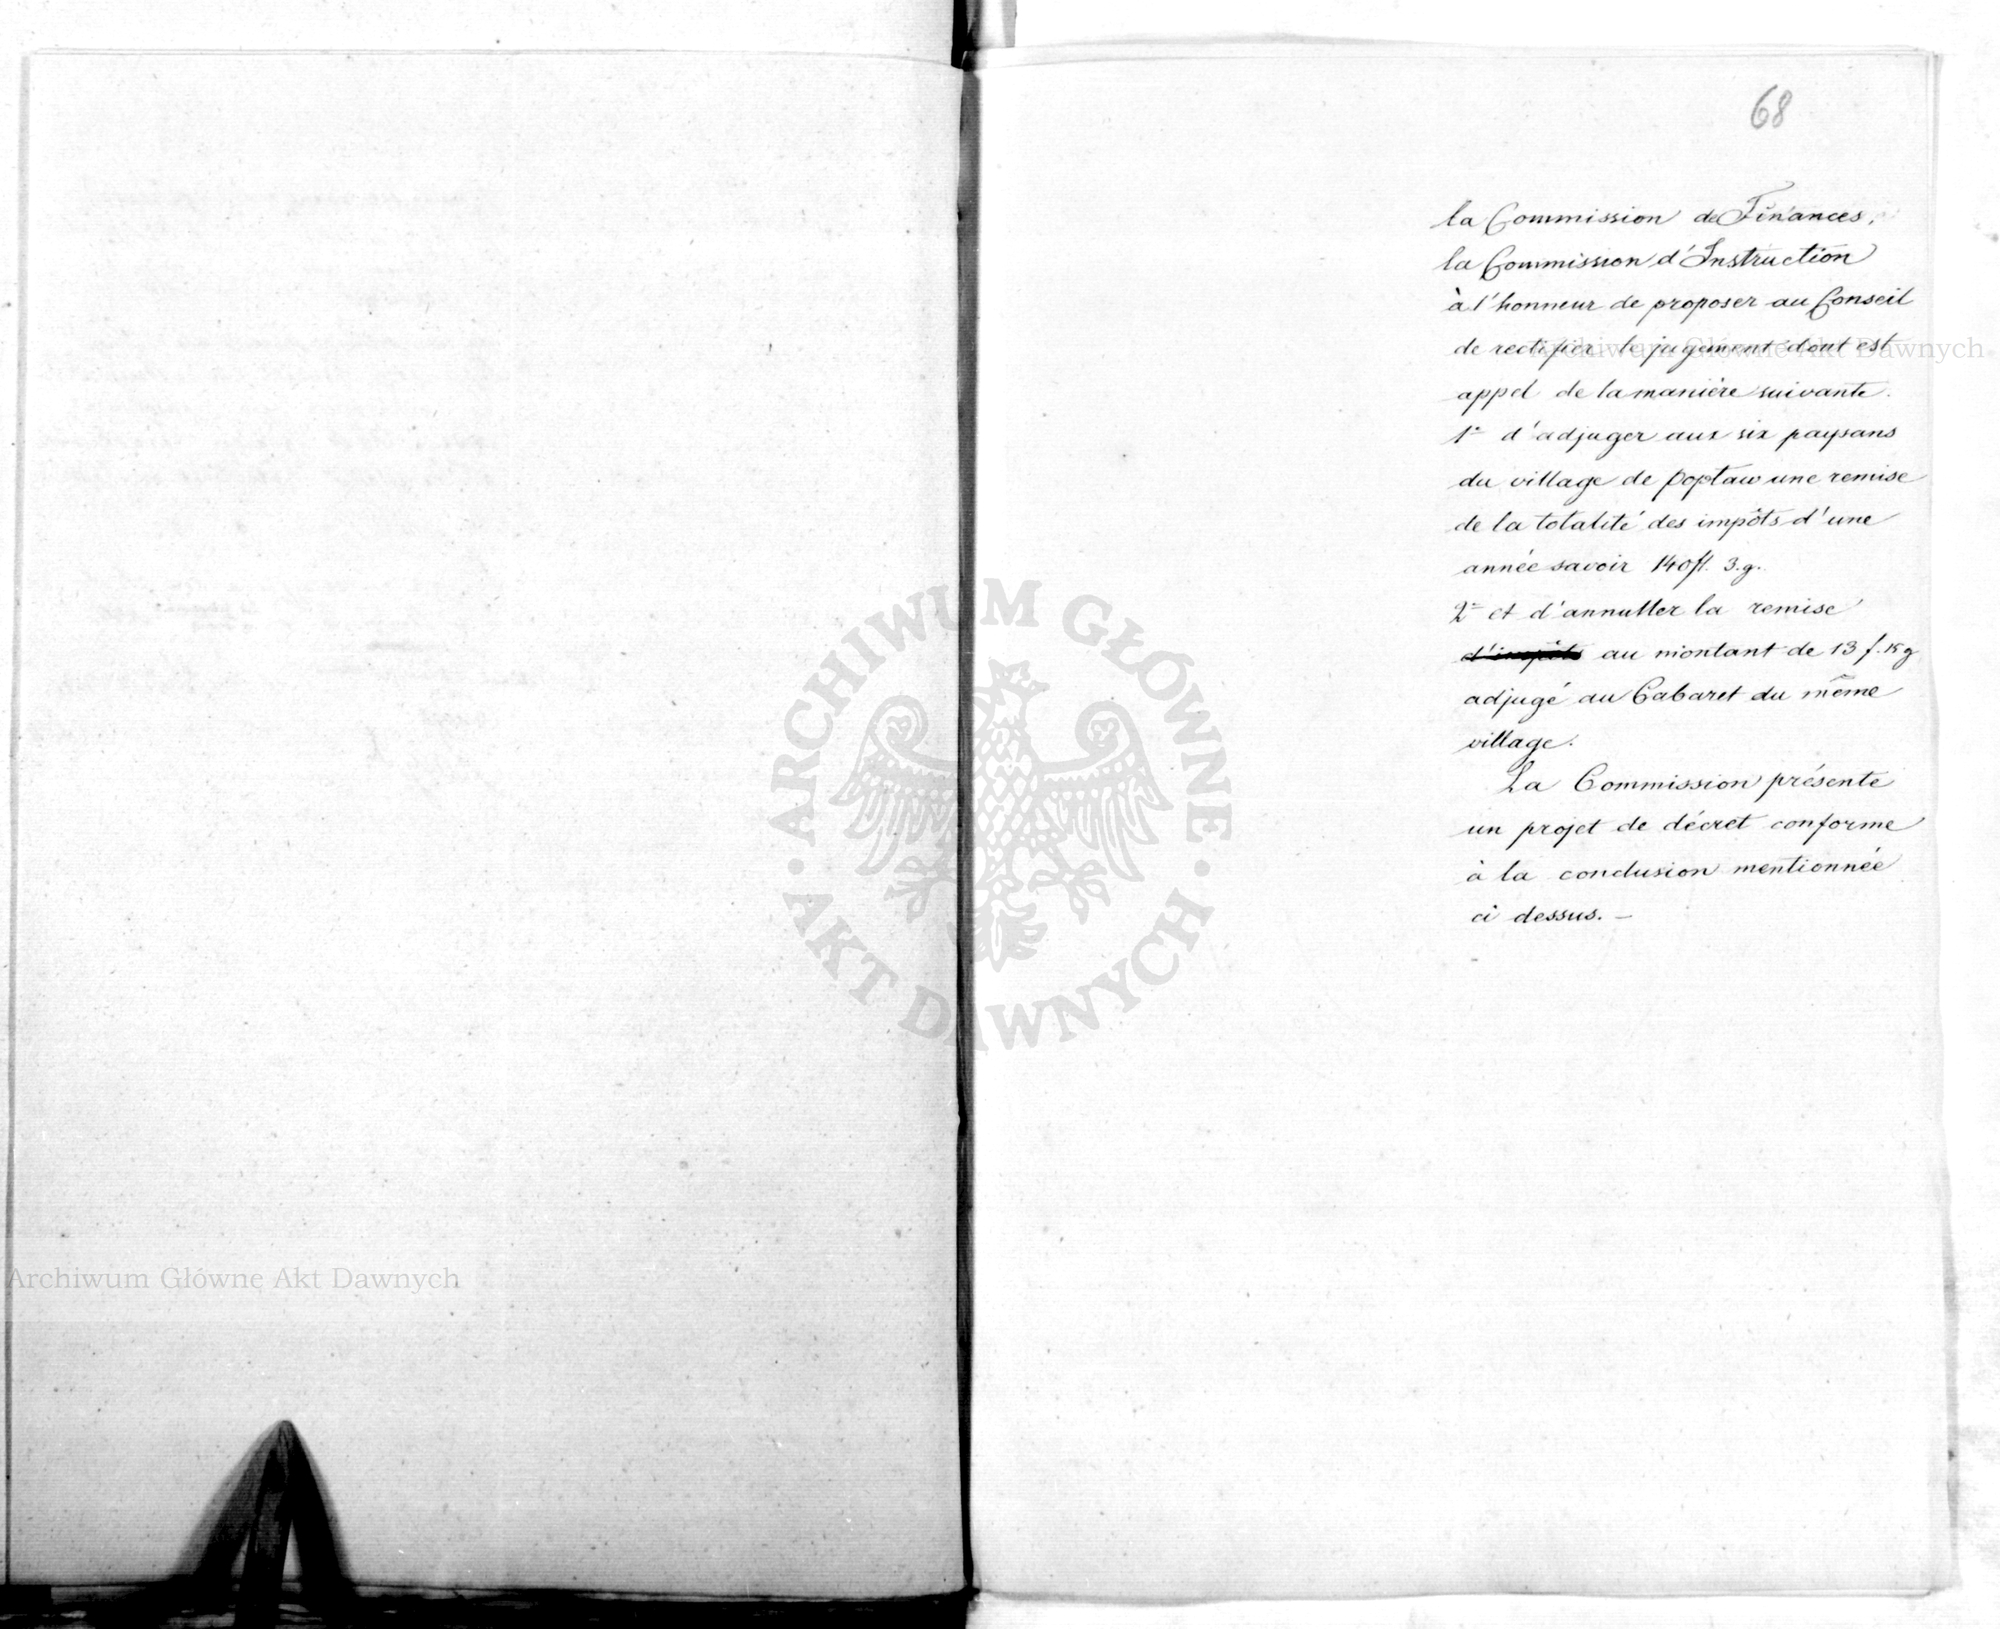 68
la Commission de Finances,
la Commission d'Instruction
à l'honneur de proposer au Conseil
de rectifier le jugement dont est
appel de la manière suivante.
1° d'adjuger aux six paysans
du village de Poptaw une remise
de la totalité des impôts d'une
année savoir 140 fl. 3.g.
2° et d'annuller la remise
d'impôts au montant de 13 f. 15 g
adjugé au Cabaret du même
village.
La Commission présente
un projet de décret conforme
à la conclusion mentionnée
ci dessus. —
Archiwum Główne Akt Dawnych
ARCHIWUM GŁÓWNE AKT DAWNYCH
Archiwum Główne Akt Dawnych